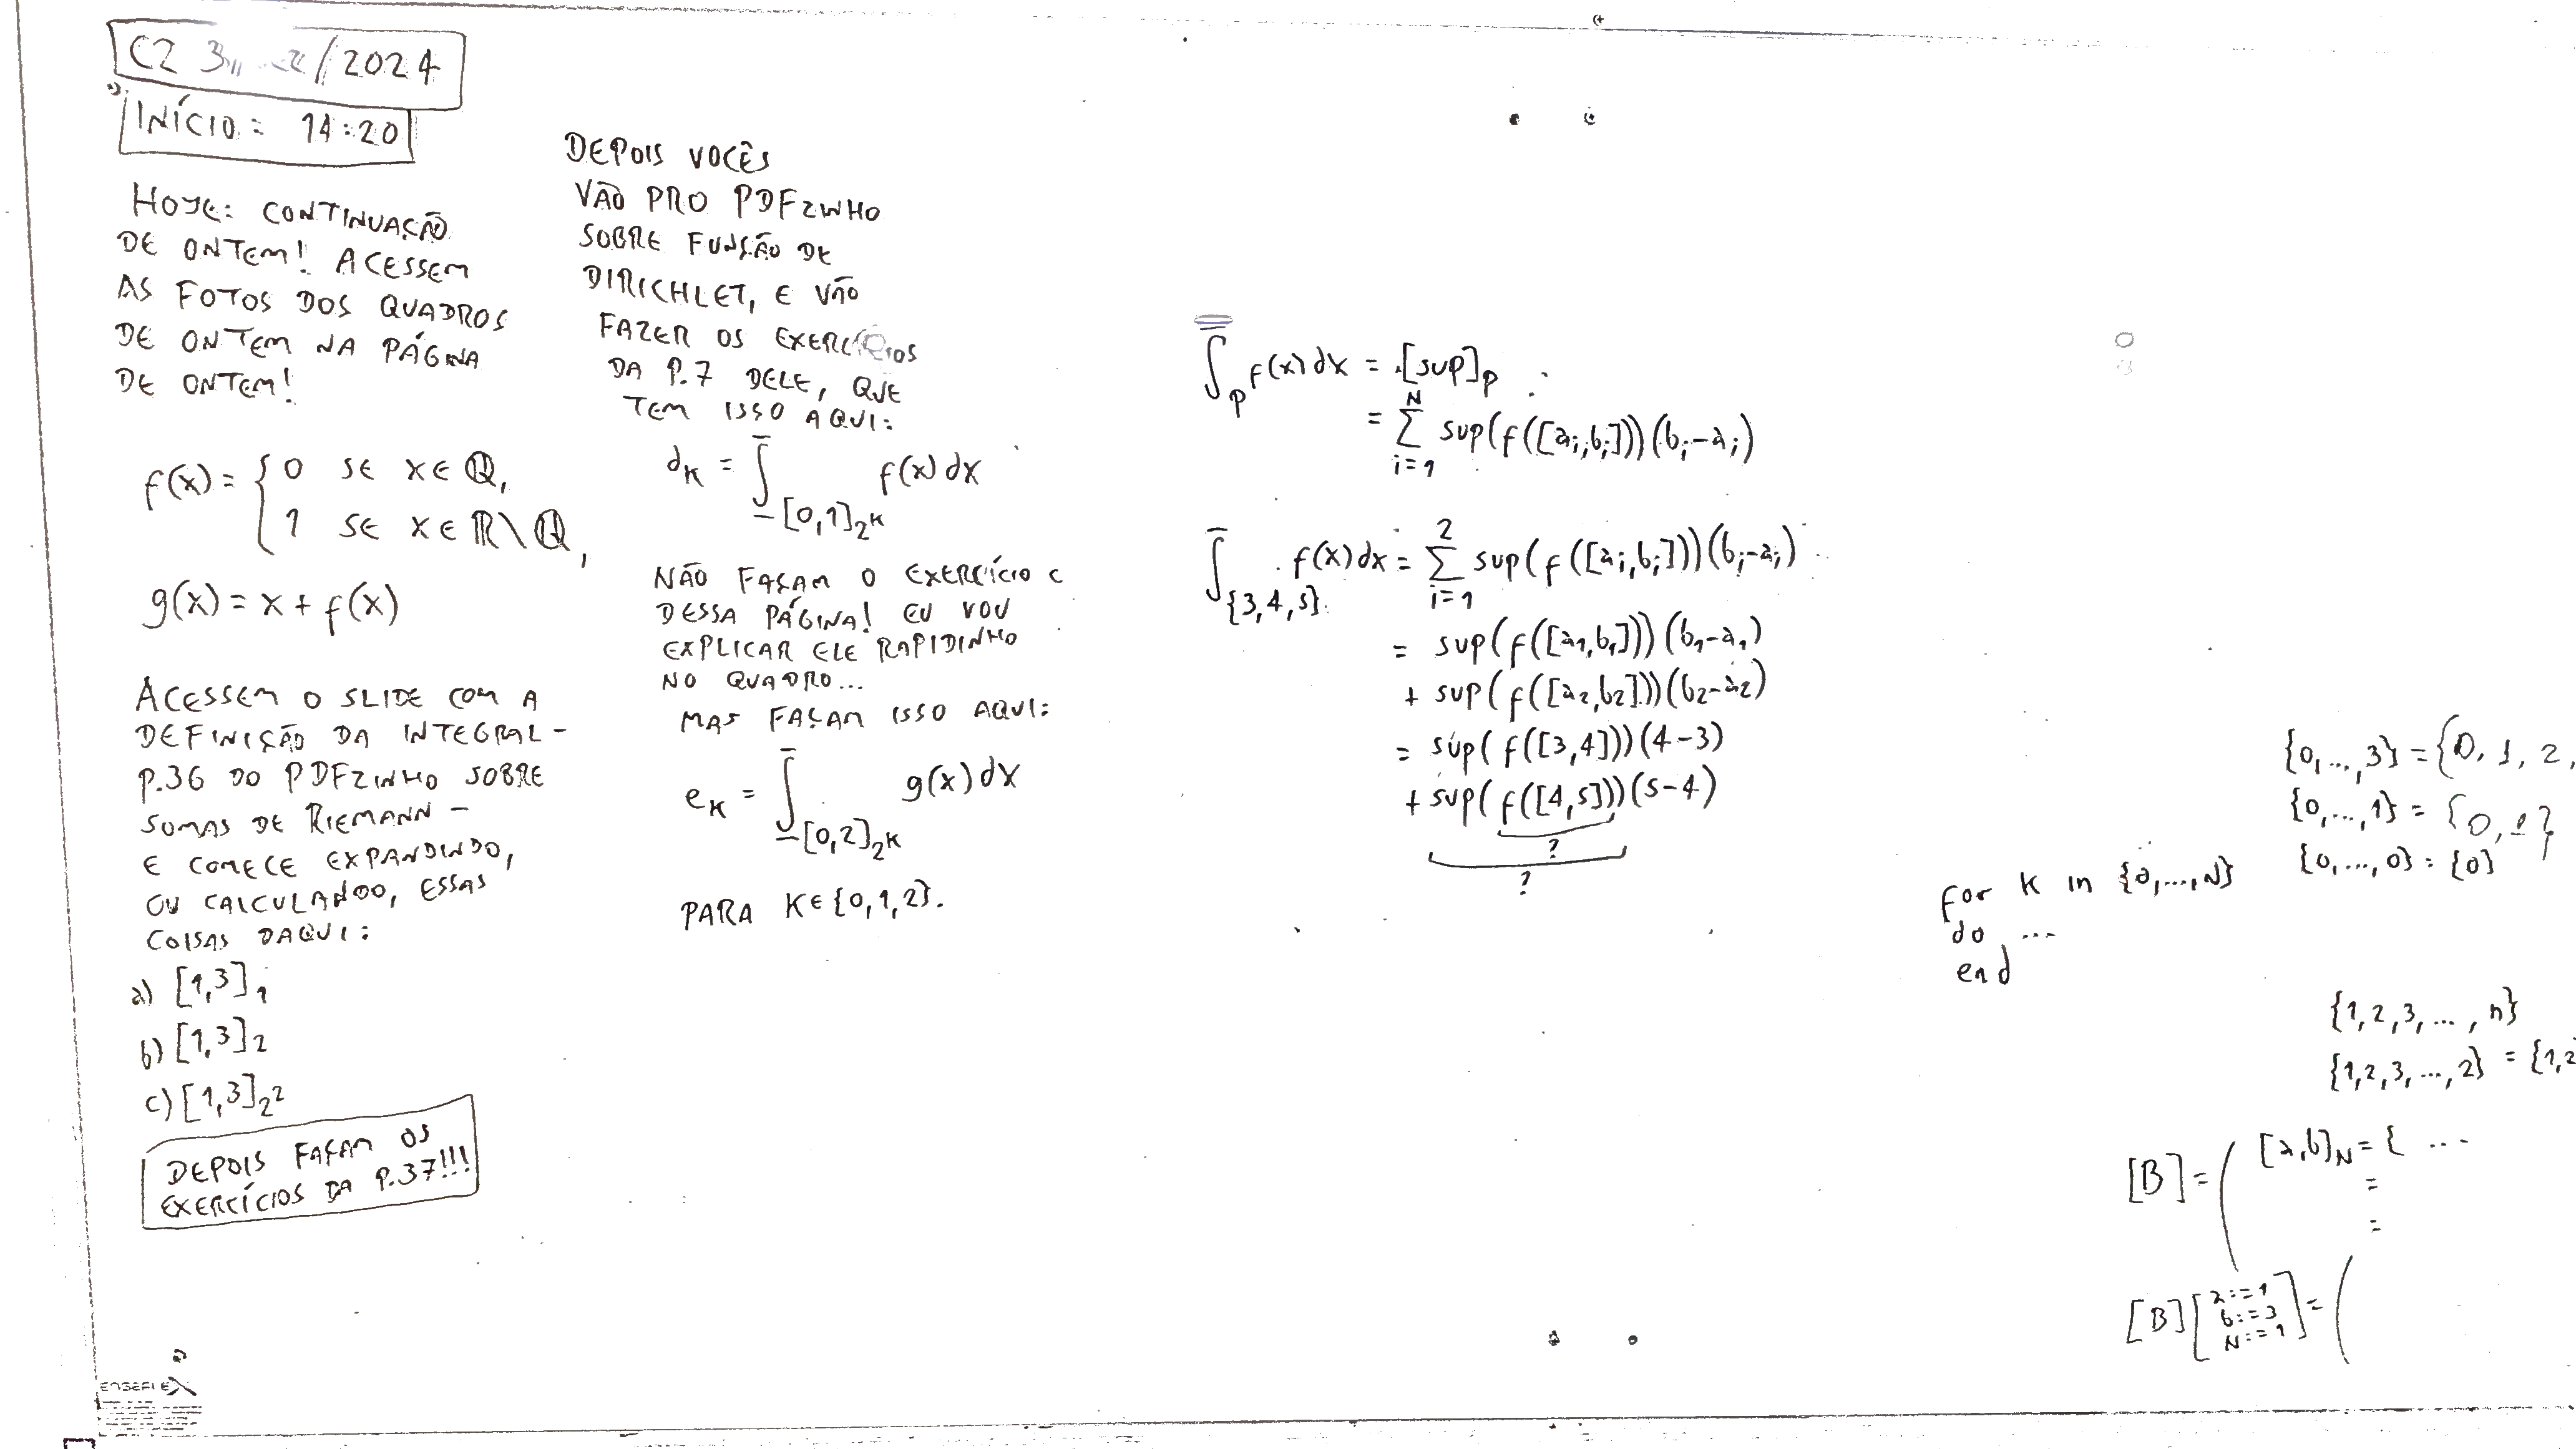 C2 /2024
INÍCIO: 14:20
HOJE: CONTINUAÇÃO
DE ONTEM! ACESSEM
AS FOTOS DOS QUADROS
DE ONTEM NA PÁGINA
DE ONTEM!
f(x) = { 0 SE x ∈ ℚ,
1 SE x ∈ ℝ\ℚ,
g(x) = x + f(x)
ACESSEM O SLIDE COM A
DEFINIÇÃO DA INTEGRAL -
P.36 DO PDFZINHO SOBRE
SOMAS DE RIEMANN -
E COMECE EXPANDINDO,
OU CALCULANDO, ESSAS
COISAS DAQUI:
a) [1,3]₁
b) [1,3]₂
c) [1,3]_{2²}
DEPOIS FAÇAM OS
EXERCÍCIOS DA P.37!!!
DEPOIS VOCÊS
VÃO PRO PDFZINHO
SOBRE FUNÇÃO DE
DIRICHLET, E VÃO
FAZER OS EXERCÍCIOS
DA P.7 DELE, QUE
TEM ISSO AQUI:
d_K = ∫̲̅_{[0,1]_{2^K}} f(x) dx
NÃO FAÇAM O EXERCÍCIO C
DESSA PÁGINA! EU VOU
EXPLICAR ELE RAPIDINHO
NO QUADRO...
MAS FAÇAM ISSO AQUI:
e_K = ∫̲̅_{[0,2]_{2^K}} g(x) dx
PARA K ∈ {0,1,2}.
∫̅_P f(x) dx = [sup]_P
= Σ_{i=1}^{N} sup(f([a_i,b_i]))(b_i-a_i)
∫̅_{{3,4,5}} f(x) dx = Σ_{i=1}^{2} sup(f([a_i,b_i]))(b_i-a_i)
= sup(f([a₁,b₁]))(b₁-a₁)
+ sup(f([a₂,b₂]))(b₂-a₂)
= sup(f([3,4]))(4-3)
+ sup(f([4,5]))(5-4)
?
?
{0,...,3} = {0,1,2,
{0,...,1} = {0,1}
{0,...,0} = {0}
for K in {0,...,N}
do ...
end
{1,2,3,...,n}
{1,2,3,...,2} = {1,2
[B] = ( [a,b]_N = { ...
=
=
[B] [a:=1
b:=3
N:=1] = (